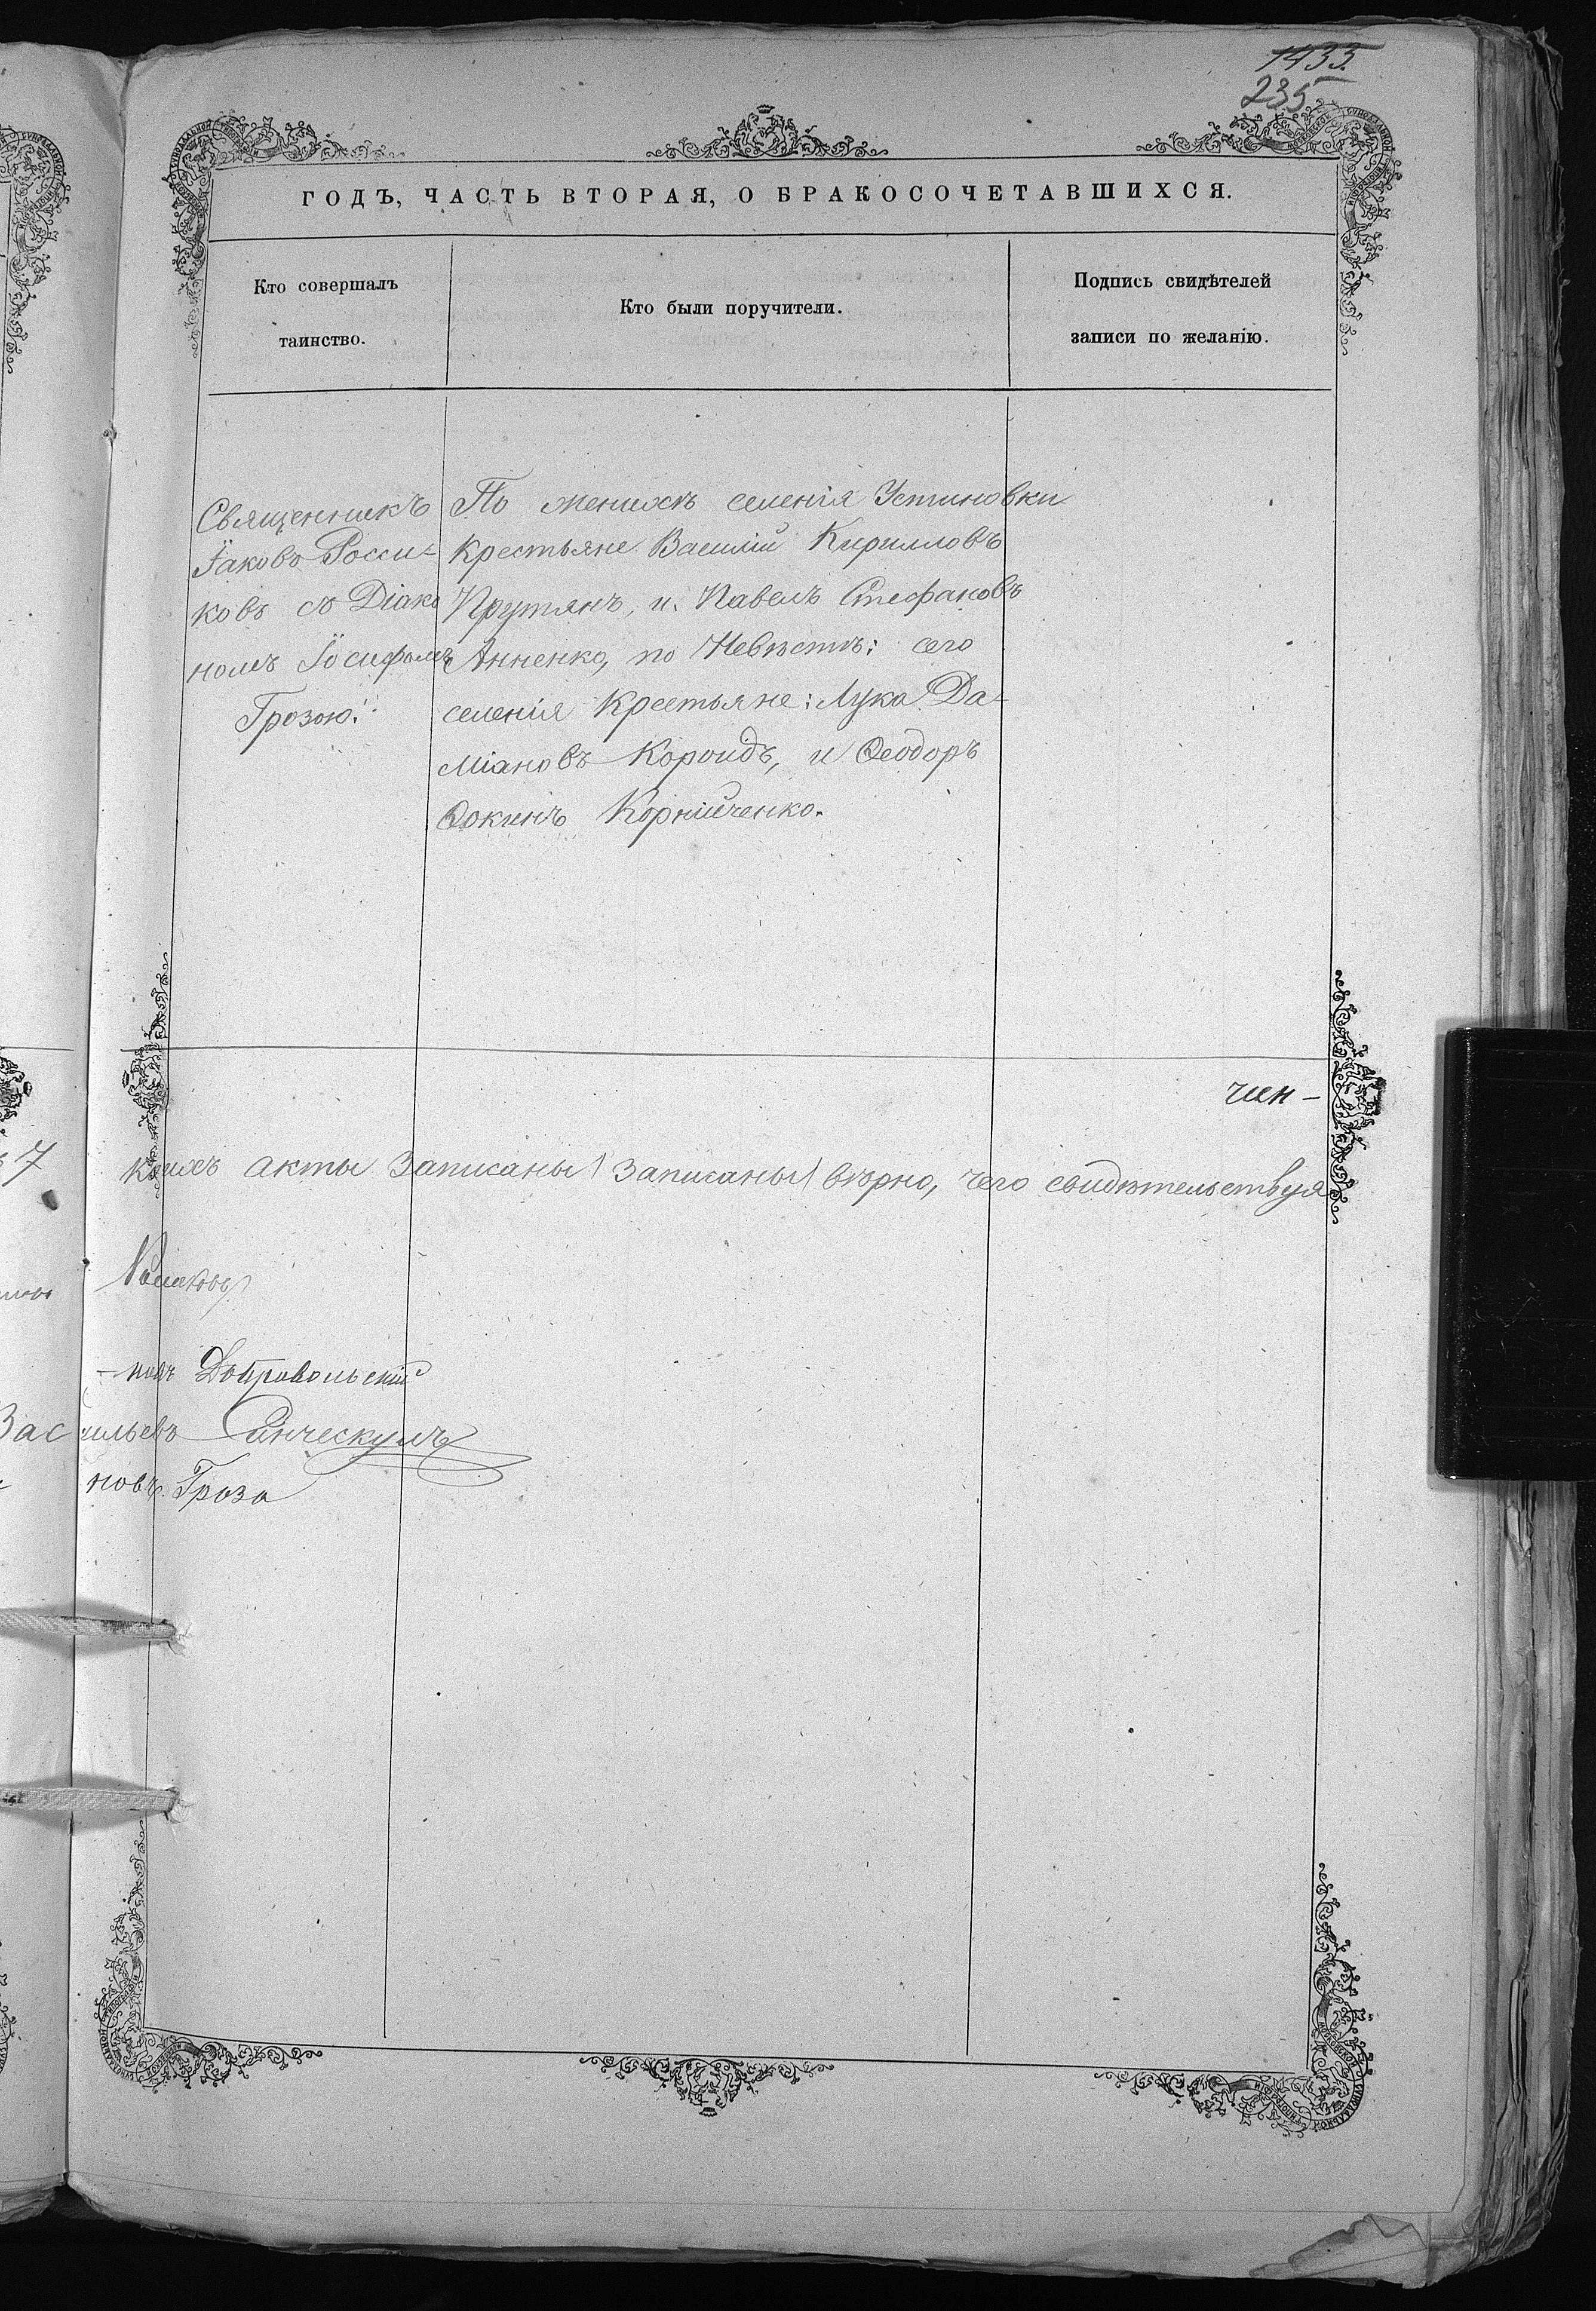 1433.
235
ГОДЪ, ЧАСТЬ ВТОРАЯ, О БРАКОСОЧЕТАВШИХСЯ.
Кто совершалъ
таинство.
Кто были поручители.
Подпись свидѣтелей
записи по желанію.
Священникъ
Іаковъ Росси-
ковъ съ Діако
номъ Іосифомъ
Грозою.
По женихѣ селенія Устиновки
Крестьяне Василій Кирилловъ
Прутянъ, и Павелъ Стефановъ
Анненко, по Невѣстѣ: сего
селенія Крестьяне: Лука Да-
міановъ Короидъ, и Ѳеодоръ
Ѳокинъ Корнійченко.
чин-
коихъ акты записаны (записаны) вѣрно, чего свидѣтельствуя
новъ Добровольскій
Васильевъ Санческулъ
новъ Гроза